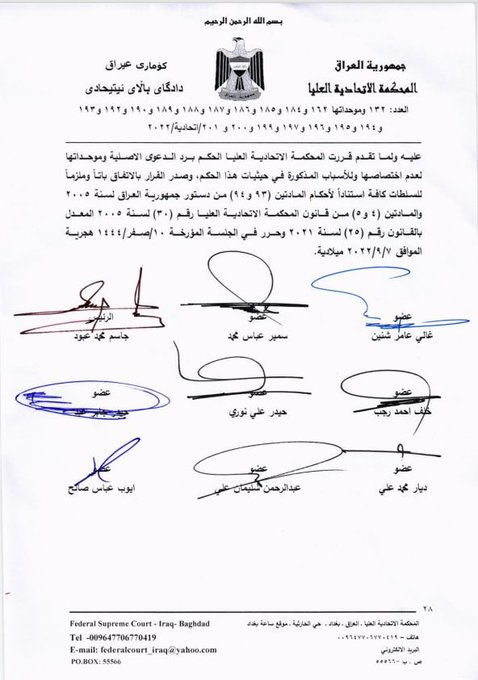 بسم الله الرحمن الرحيم
جمهورية العراق
المحكمة الاتحادية العليا
كۆماری عیراق
دادگای باڵای ئیتیحادی
العدد: ١٣٢ وموحداتها ١٦٢ و١٨٤ و١٨٥ و١٨٦ و١٨٧ و١٨٨ و١٨٩ و١٩٠ و١٩٢ و١٩٣
و١٩٤ و١٩٥ و١٩٦ و١٩٧ و١٩٩ و٢٠٠ و٢٠١/اتحادية/٢٠٢٢
عليه ولما تقدم قررت المحكمة الاتحادية العليا الحكم برد الدعوى الاصلية وموحداتها
لعدم اختصاصها وللأسباب المذكورة في حيثيات هذا الحكم، وصدر القرار بالاتفاق باتاً وملزماً
للسلطات كافة استناداً لأحكام المادتين (٩٣ و٩٤) من دستور جمهورية العراق لسنة ٢٠٠٥
والمادتين (٤ و٥) من قانون المحكمة الاتحادية العليا رقم (٣٠) لسنة ٢٠٠٥ المعدل
بالقانون رقم (٢٥) لسنة ٢٠٢١ وحرر في الجلسة المؤرخة ١٠/صفر/١٤٤٤ هجرية
الموافق ٢٠٢٢/٩/٧ ميلادية.
عضو
غالي عامر شنين
عضو
سمير عباس محمد
الرئيس
جاسم محمد عبود
عضو
خلف احمد رجب
عضو
حيدر علي نوري
عضو
حيدر جابر عبد
عضو
ديار محمد علي
عضو
عبدالرحمن سليمان علي
عضو
ايوب عباس صالح
٢٨
Federal Supreme Court - Iraq- Baghdad
Tel -009647706770419
E-mail: federalcourt_iraq@yahoo.com
PO.BOX: 55566
المحكمة الاتحادية العليا - العراق - بغداد - حي الحارثية - موقع ساعة بغداد
هاتف – ٠٠٩٦٤٧٧٠٦٧٧٠٤١٩
البريد الالكتروني
ص . ب - ٥٥٥٦٦